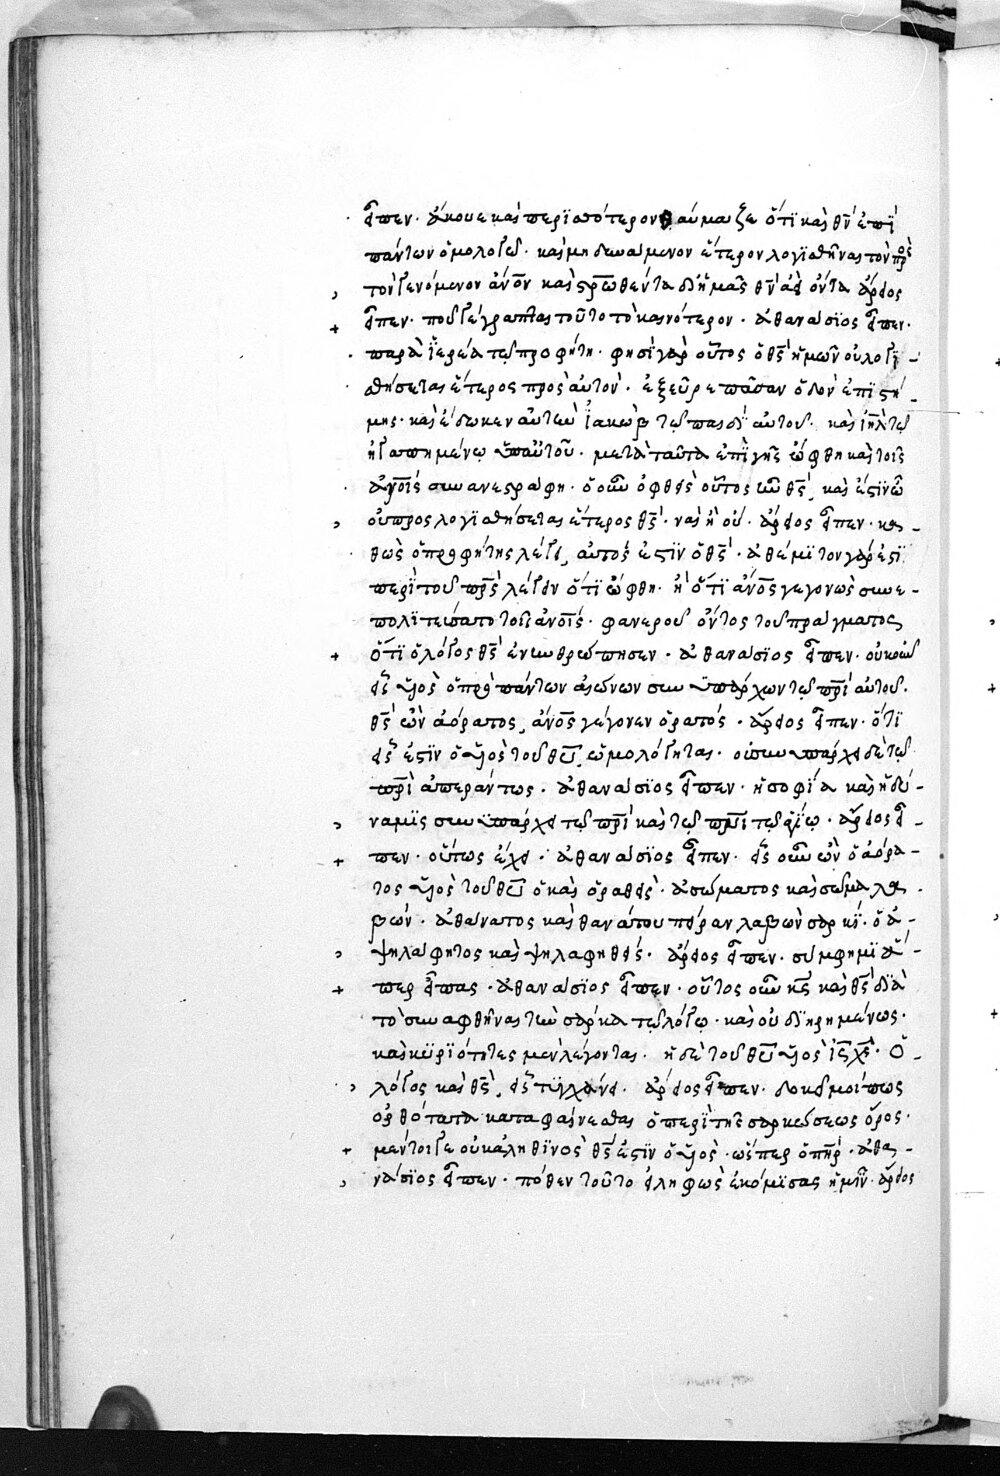 εἶπεν· ἄκουε καὶ περϊσσότερον θαύμαζε ὅτϊ καὶ θν̅ ἐπϊ
πάντων ὁμολογεῖ· καὶ μὴ δεχόμενον ἕτερον λογϊσθῆναι τὸν πρὸς
, τὸν γενόμενον ἄνο̅ν καὶ σρ̅ωθέντα δϊ' ἡμᾶς θν̅ ἀεὶ ὄντα ἄρειος
+ εἶπεν· ποῦ γέγραπται τοῦτο τὸ καινότερον· ἀθανάσϊος εἶπεν·
· παρὰ ἱ̈ερεμία τῶ προφήτη· φησὶ γὰρ οὗτος ὁ θς̅ ἡμῶν οὐ λογϊ-
· θήσεται ἕτερος πρὸς αὐτὸν· ἐξεῦρε πᾶσαν ὁδὸν ἐπϊστή-
μης· καὶ ἔδωκεν αὐτὴν ἰ̈ακὼβ τῶ παιδὶ αὐτοῦ· καὶ ιη̅λ τῶ
ἠγαπημένω ὑπ' αὐτοῦ· μετὰ ταῦτα ἐπὶ γῆς ὤφθη καὶ τοῖς
· ἀνοις̅ συνανεστράφη· ὁ οὖν ὀφθεὶς οὗτος ὢν θς̅, καὶ ἔστϊν ὧ
, οὐ προσλογϊσθήσεται ἕτερος θς̅· ναὶ ἢ οὔ· ἄρειος εἶπεν· κα-
· θὼς ὁ προφήτης λέγει, αὐτός ἐστϊν ὁ θς̅· ἀθέμϊτον γάρ ἐστϊ
περὶ τοῦ πρς̅ λέγειν ὅτϊ ὤφθη· ἢ ὅτϊ ἄνο̅ς γεγονὼς συνε-
πολϊτεύσατο τοῖς ἀνοις̅· φανεροῦ ὄντος τοῦ πράγματος,
+ ὅτϊ ὁ λόγος θς̅ ἐνηνθρώπησεν· ἀθανάσϊος εἶπεν· οὐκοῦν
εἷς υἱὸς ὁ πρὸ πάντων αἰώνων συνυπάρχων τῶ πρὶ̅ αὐτοῦ·
θς̅ ὢν ἀόρατος, ἄνο̅ς γέγονεν ὁρατός· ἄρειος εἶπεν· ὅτϊ
εἷς ἐστϊν ὁ υἱὸς τοῦ θυ̅, ὡμολόγηται· οὐ συνυπάρχει δὲ τῶ
πρὶ̅ ἀπεράντως· ἀθανάσϊος εἶπεν· ἡ σοφία καὶ ἡ δύ-
, ναμϊς συνυπάρχει τῶ πρὶ̅ καὶ τῶ πνι̅ τῶ ἁγίω· ἄρειος εἶ-
+ πεν· οὕτως ἔχει· ἀθανάσϊος εἶπεν· εἷς οὖν ὢν ὁ ἀόρα-
τος υἱὸς τοῦ θυ̅ ὁ καὶ ὁραθεὶς· ἀσώματος καὶ σῶμα λα-
βών· ἀθάνατος καὶ θανάτου πεῖραν λαβὼν σαρκί· ὁ ἀ-
, ψηλάφητος καὶ ψηλαφηθείς· ἄρειος εἶπεν· σύμφημϊ ἅ-
+ περ εἶπας· ἀθανάσϊος εἶπεν· οὗτος οὖν κς̅ καὶ θς̅ διὰ
τὸ συναφθῆναι τὴν σάρκα τῶ λόγω· καὶ οὐ διηρημένως·
καὶ κϋρϊότητες μὲν λέγονται· ἡ δὲ τοῦ θυ̅ υἱὸς ἰς̅ χς̅· ὁ
, λόγος καὶ θς̅, εἷς τϋγχάνει· ἄρειος εἶπεν· δοκεῖ μοί πως
ὀρθότατα καταφαίνεσθαι ὁ περὶ τῆς σαρκώσεως ὅρος·
+ μέντοιγε οὐκ ἀληθϊνὸς θς̅ ἐστϊν ὁ υἱὸς· ὥσπερ ὁ πηρ̅· ἀθα-
, νάσϊος εἶπεν· πόθεν τοῦτο εἰληφὼς ἐκόμϊσας ἡμῖν· ἄρειος